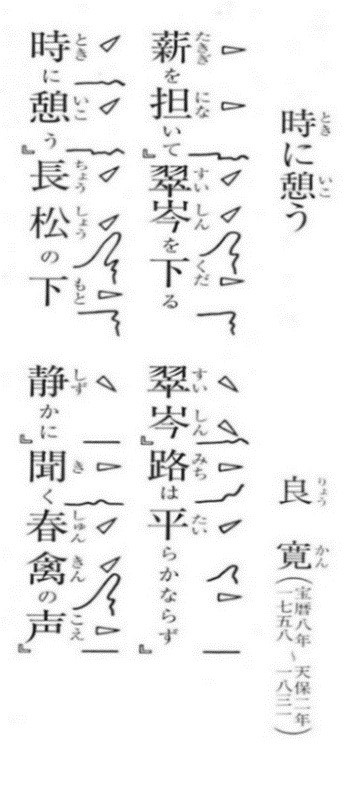 時に憩う
良寛(宝暦八年〜天保二年 一七五八〜一八三一)
薪を担いて『翠岑を下る
翠岑『路は平らかならず『
時に憩う『長松の下
静かに『聞く春禽の声『